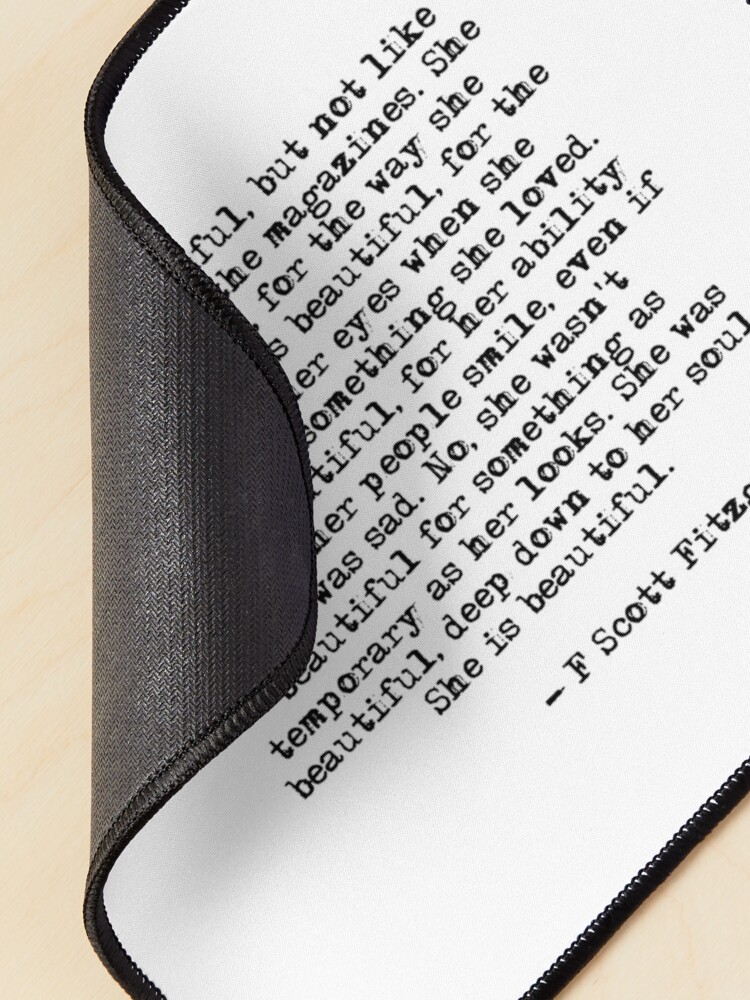 ful, but not like
he magazines. She
, for the way she
s beautiful, for the
er eyes when she
something she loved.
tiful, for her ability
her people smile, even if
was sad. No, she wasn't
beautiful for something as
temporary as her looks. She was
beautiful, deep down to her soul
She is beautiful.
— F Scott Fitz